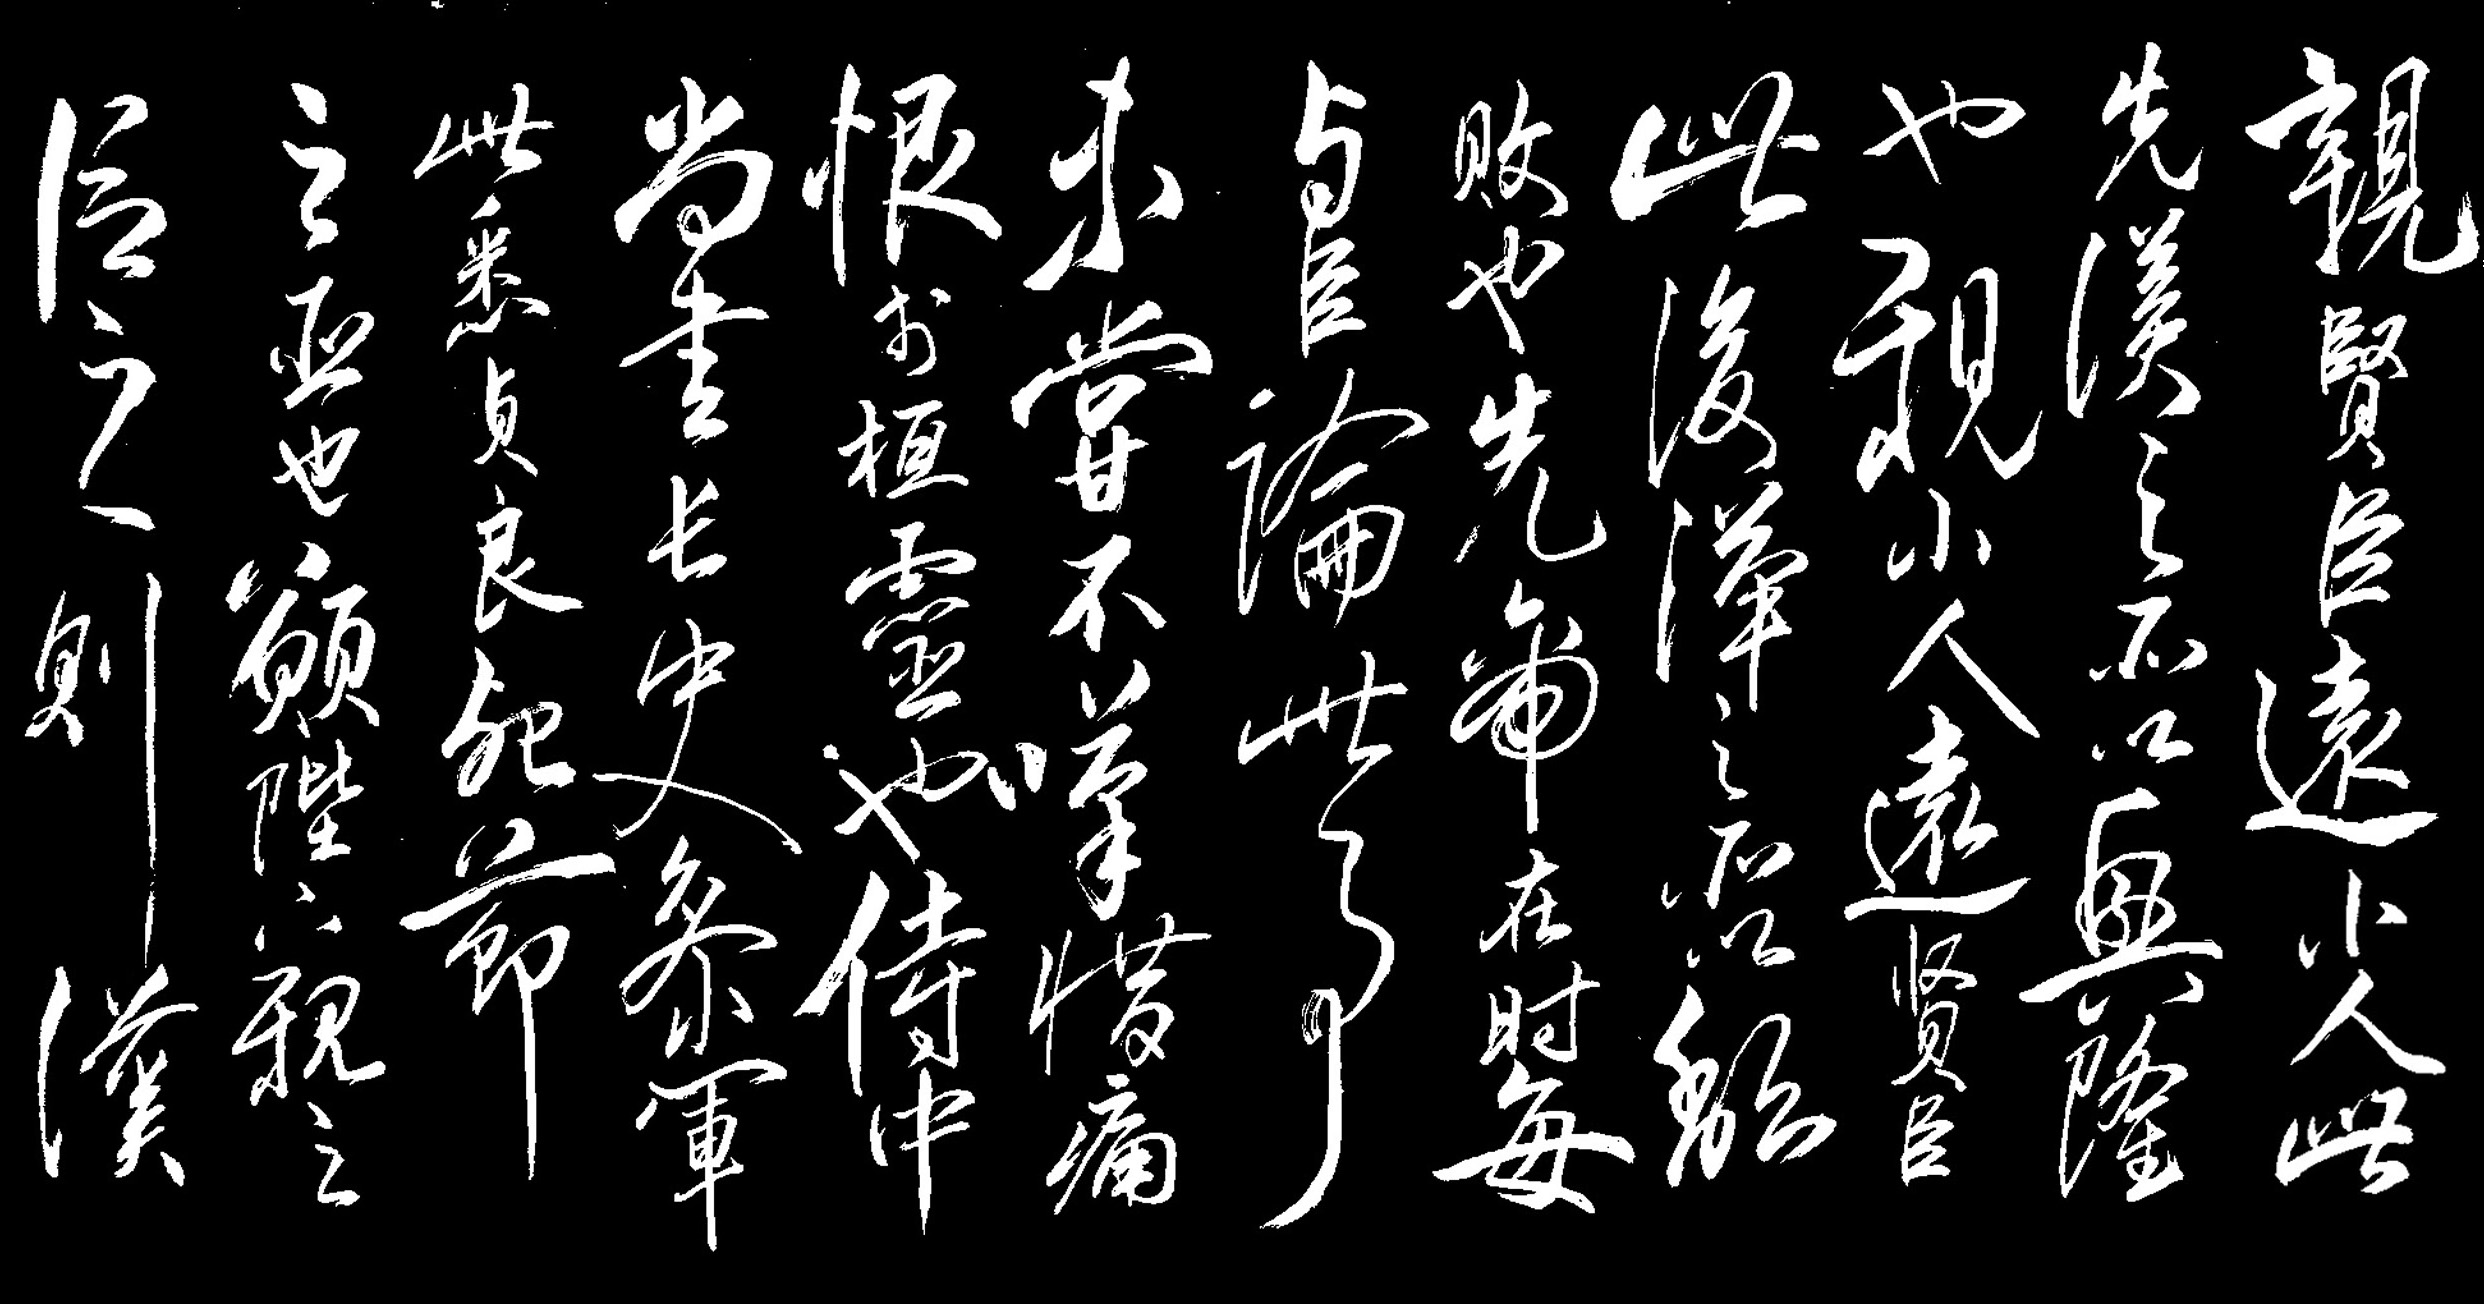 親賢臣遠小人此
先漢之所以興隆
也親小人遠賢臣
此後漢之所以傾
敗也先帝在時每
与臣論此事
未嘗不嘆惜痛
恨於桓靈也侍中
尚書長史參軍
此悉貞良死節
之臣也願陛下親之
信之則漢